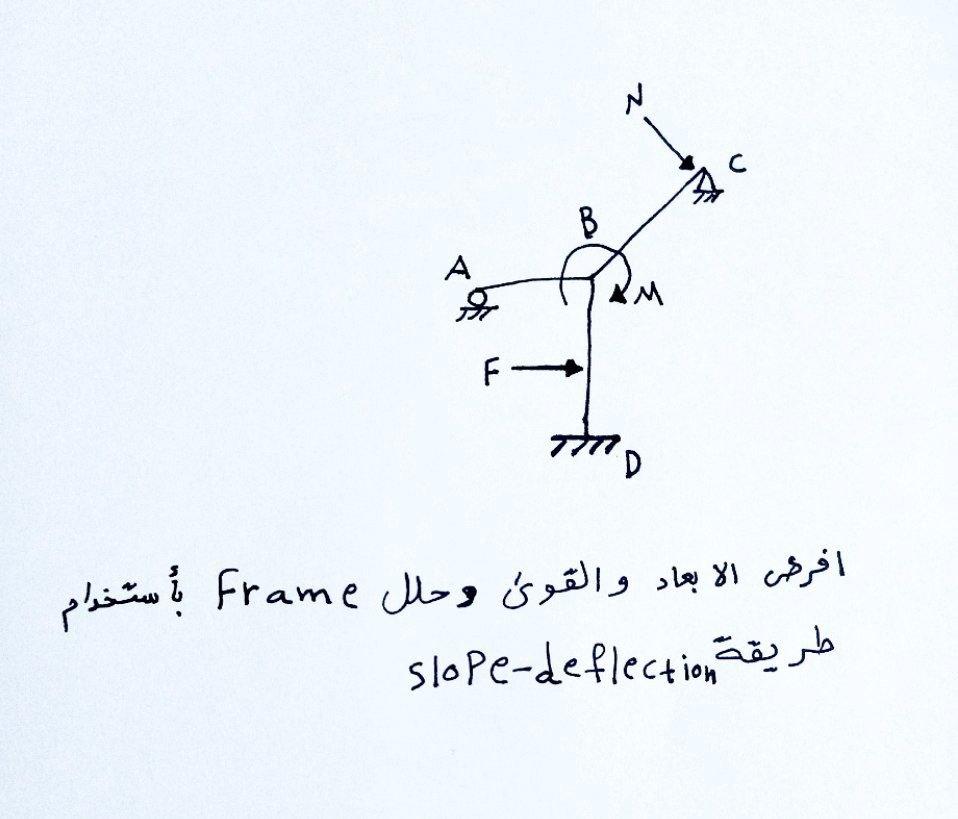 N
C
B
A
M
F
D
افرض الابعاد والقوئ وحلل Frame بأستخدام
طريقة slope-deflection